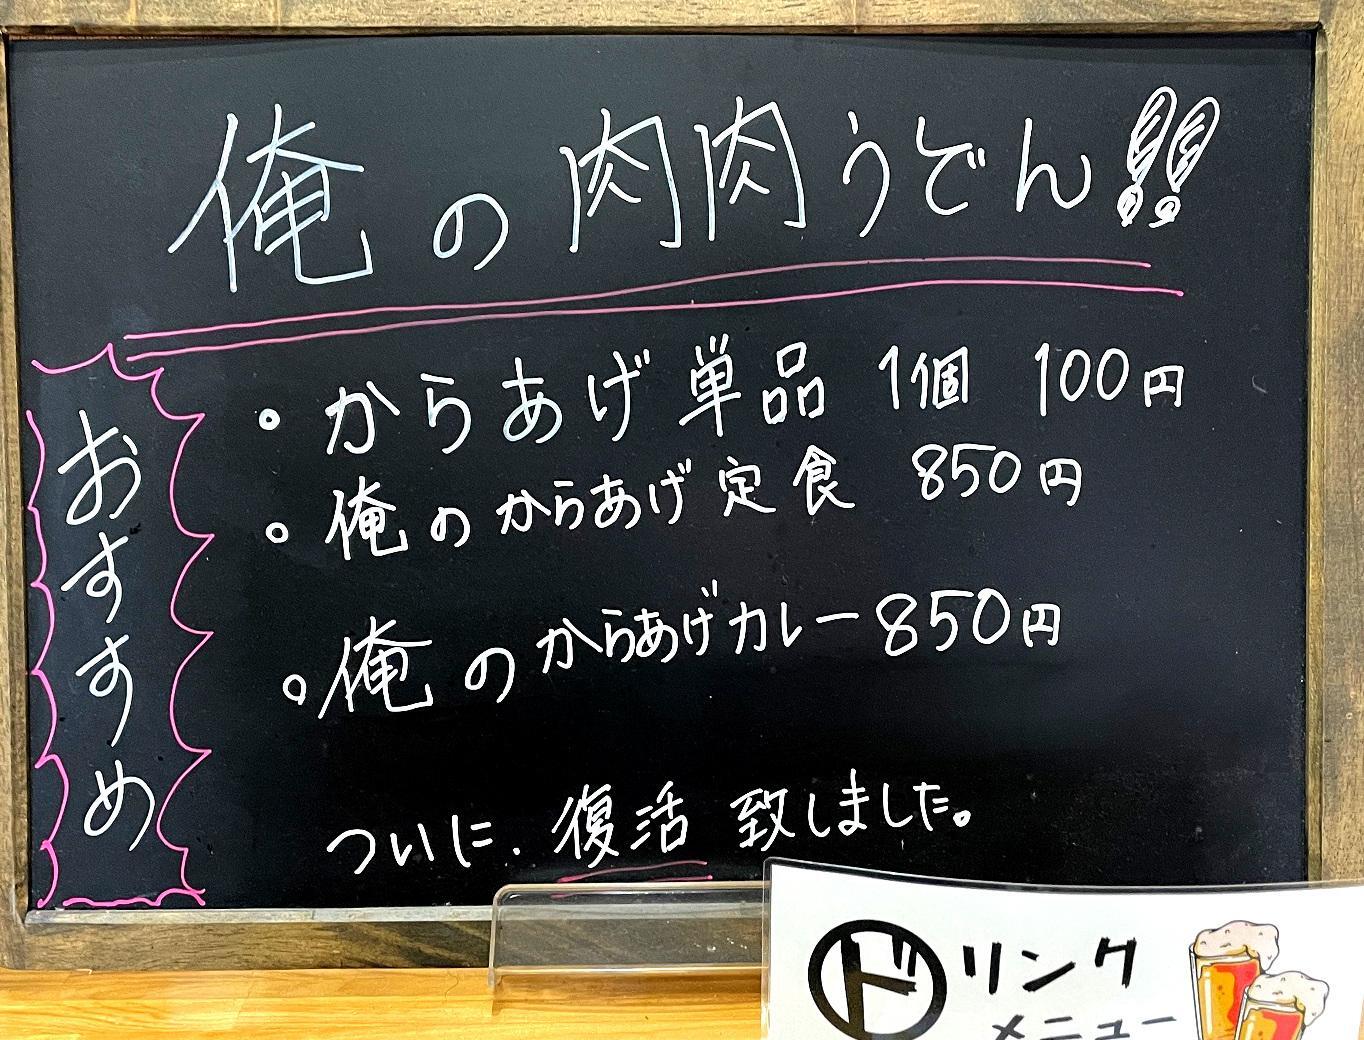 俺の肉肉うどん!!
おすすめ
・からあげ単品 1個 100円
・俺のからあげ定食 850円
・俺のからあげカレー850円
ついに、復活 致しました。
ドリンク
メニュー